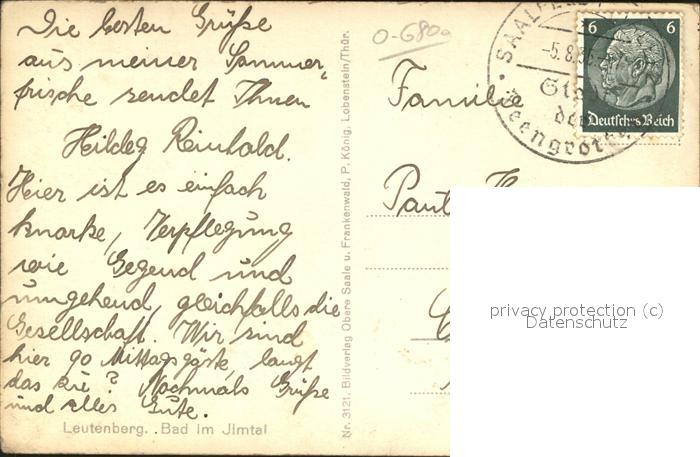 Die besten Grüße
aus meiner Sommer„
frische sendet Ihnen
Hildeg Reinhold.
Hier ist es einfach
knorke, Verpflegung
wie Gegend und
umgehend, gleichfalls die
Gesellschaft. Wir sind
hier 90 Mittagsgäste, langt
das zu? Nochmals Grüße
und alles Gute.
Leutenberg. Bad im Jlmtal
Nr. 3121. Bildverlag Obere Saale u. Frankenwald, P. König, Lobenstein/Thür.
O-680a
Familie
Paul
SAALFELD
-5.8.
Stadt
der
Feengrotten
6 6
Deutsches Reich
privacy protection (c)
Datenschutz